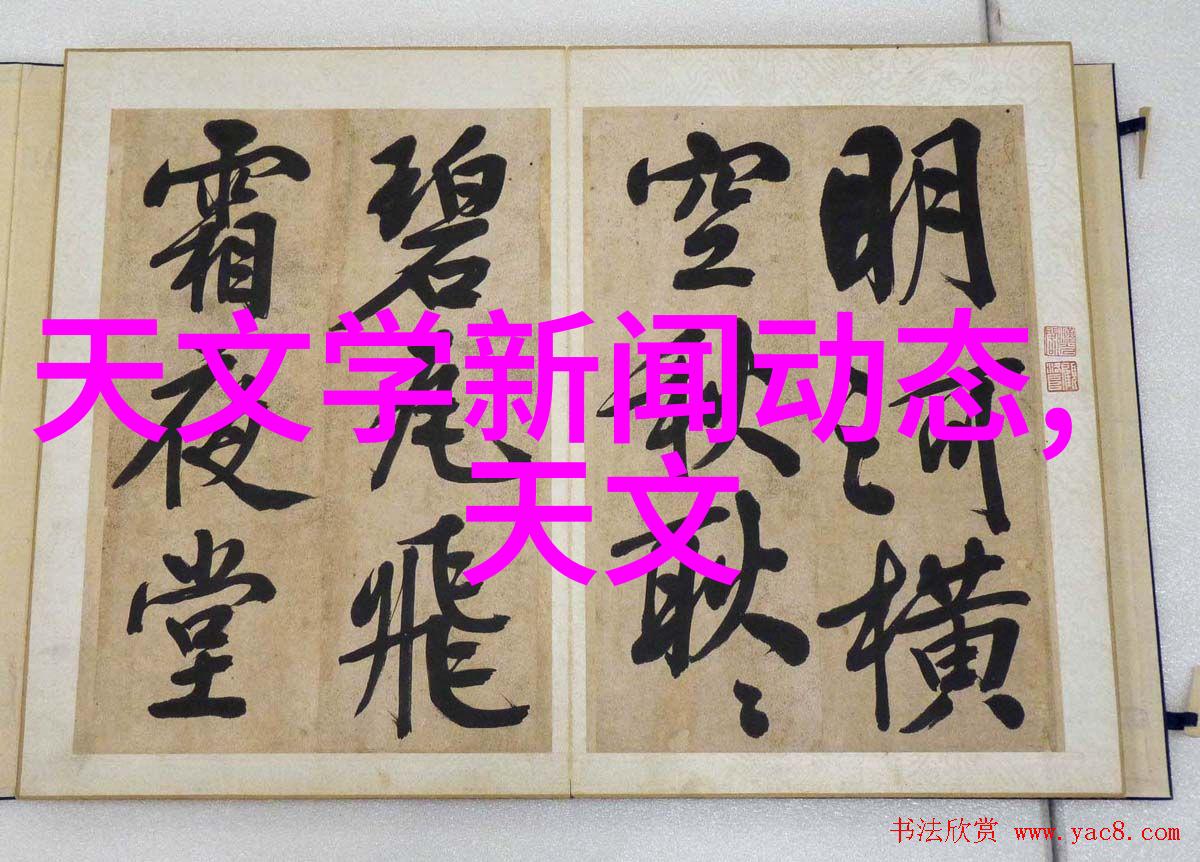 明河橫
空秋耿〻
碧飛
霜夜堂
天文学新闻动态,
天文
书法欣赏 www.yac8.com